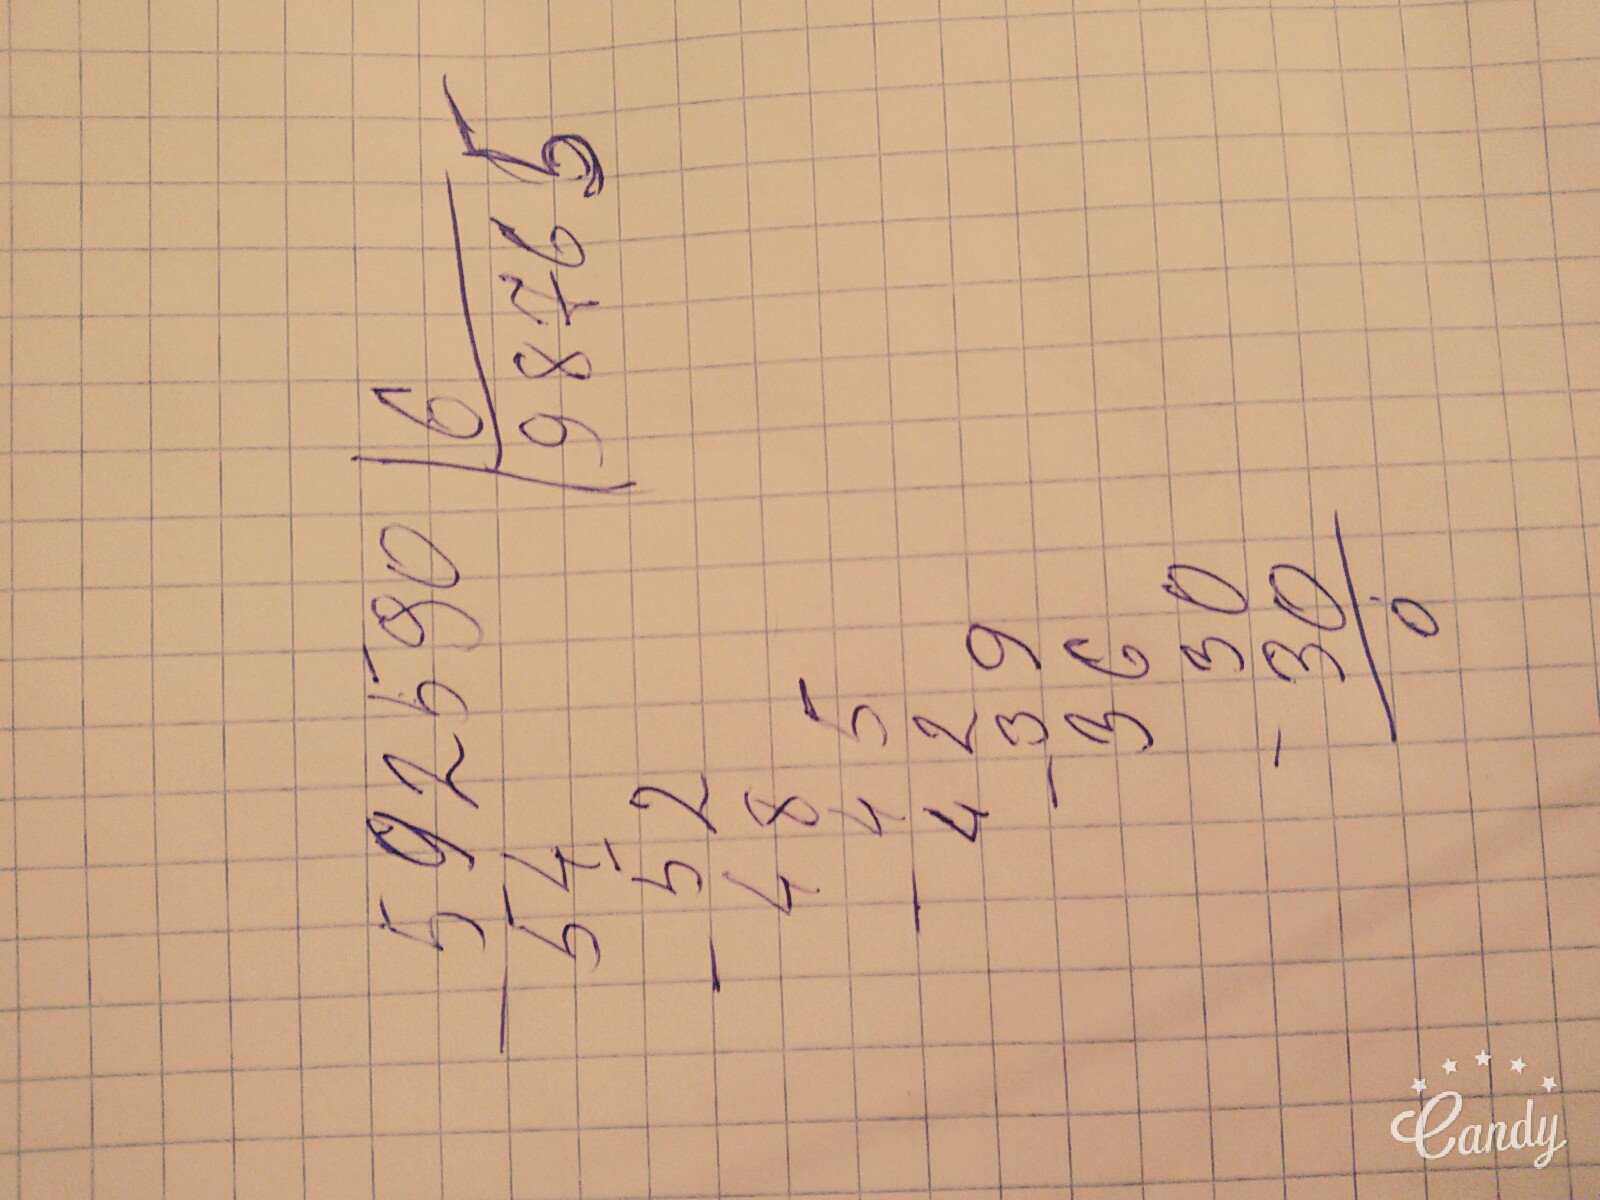 592590 | 6
- 54 | 98765
- 52
48
- 45
42
- 39
36
30
- 30
0
Candy